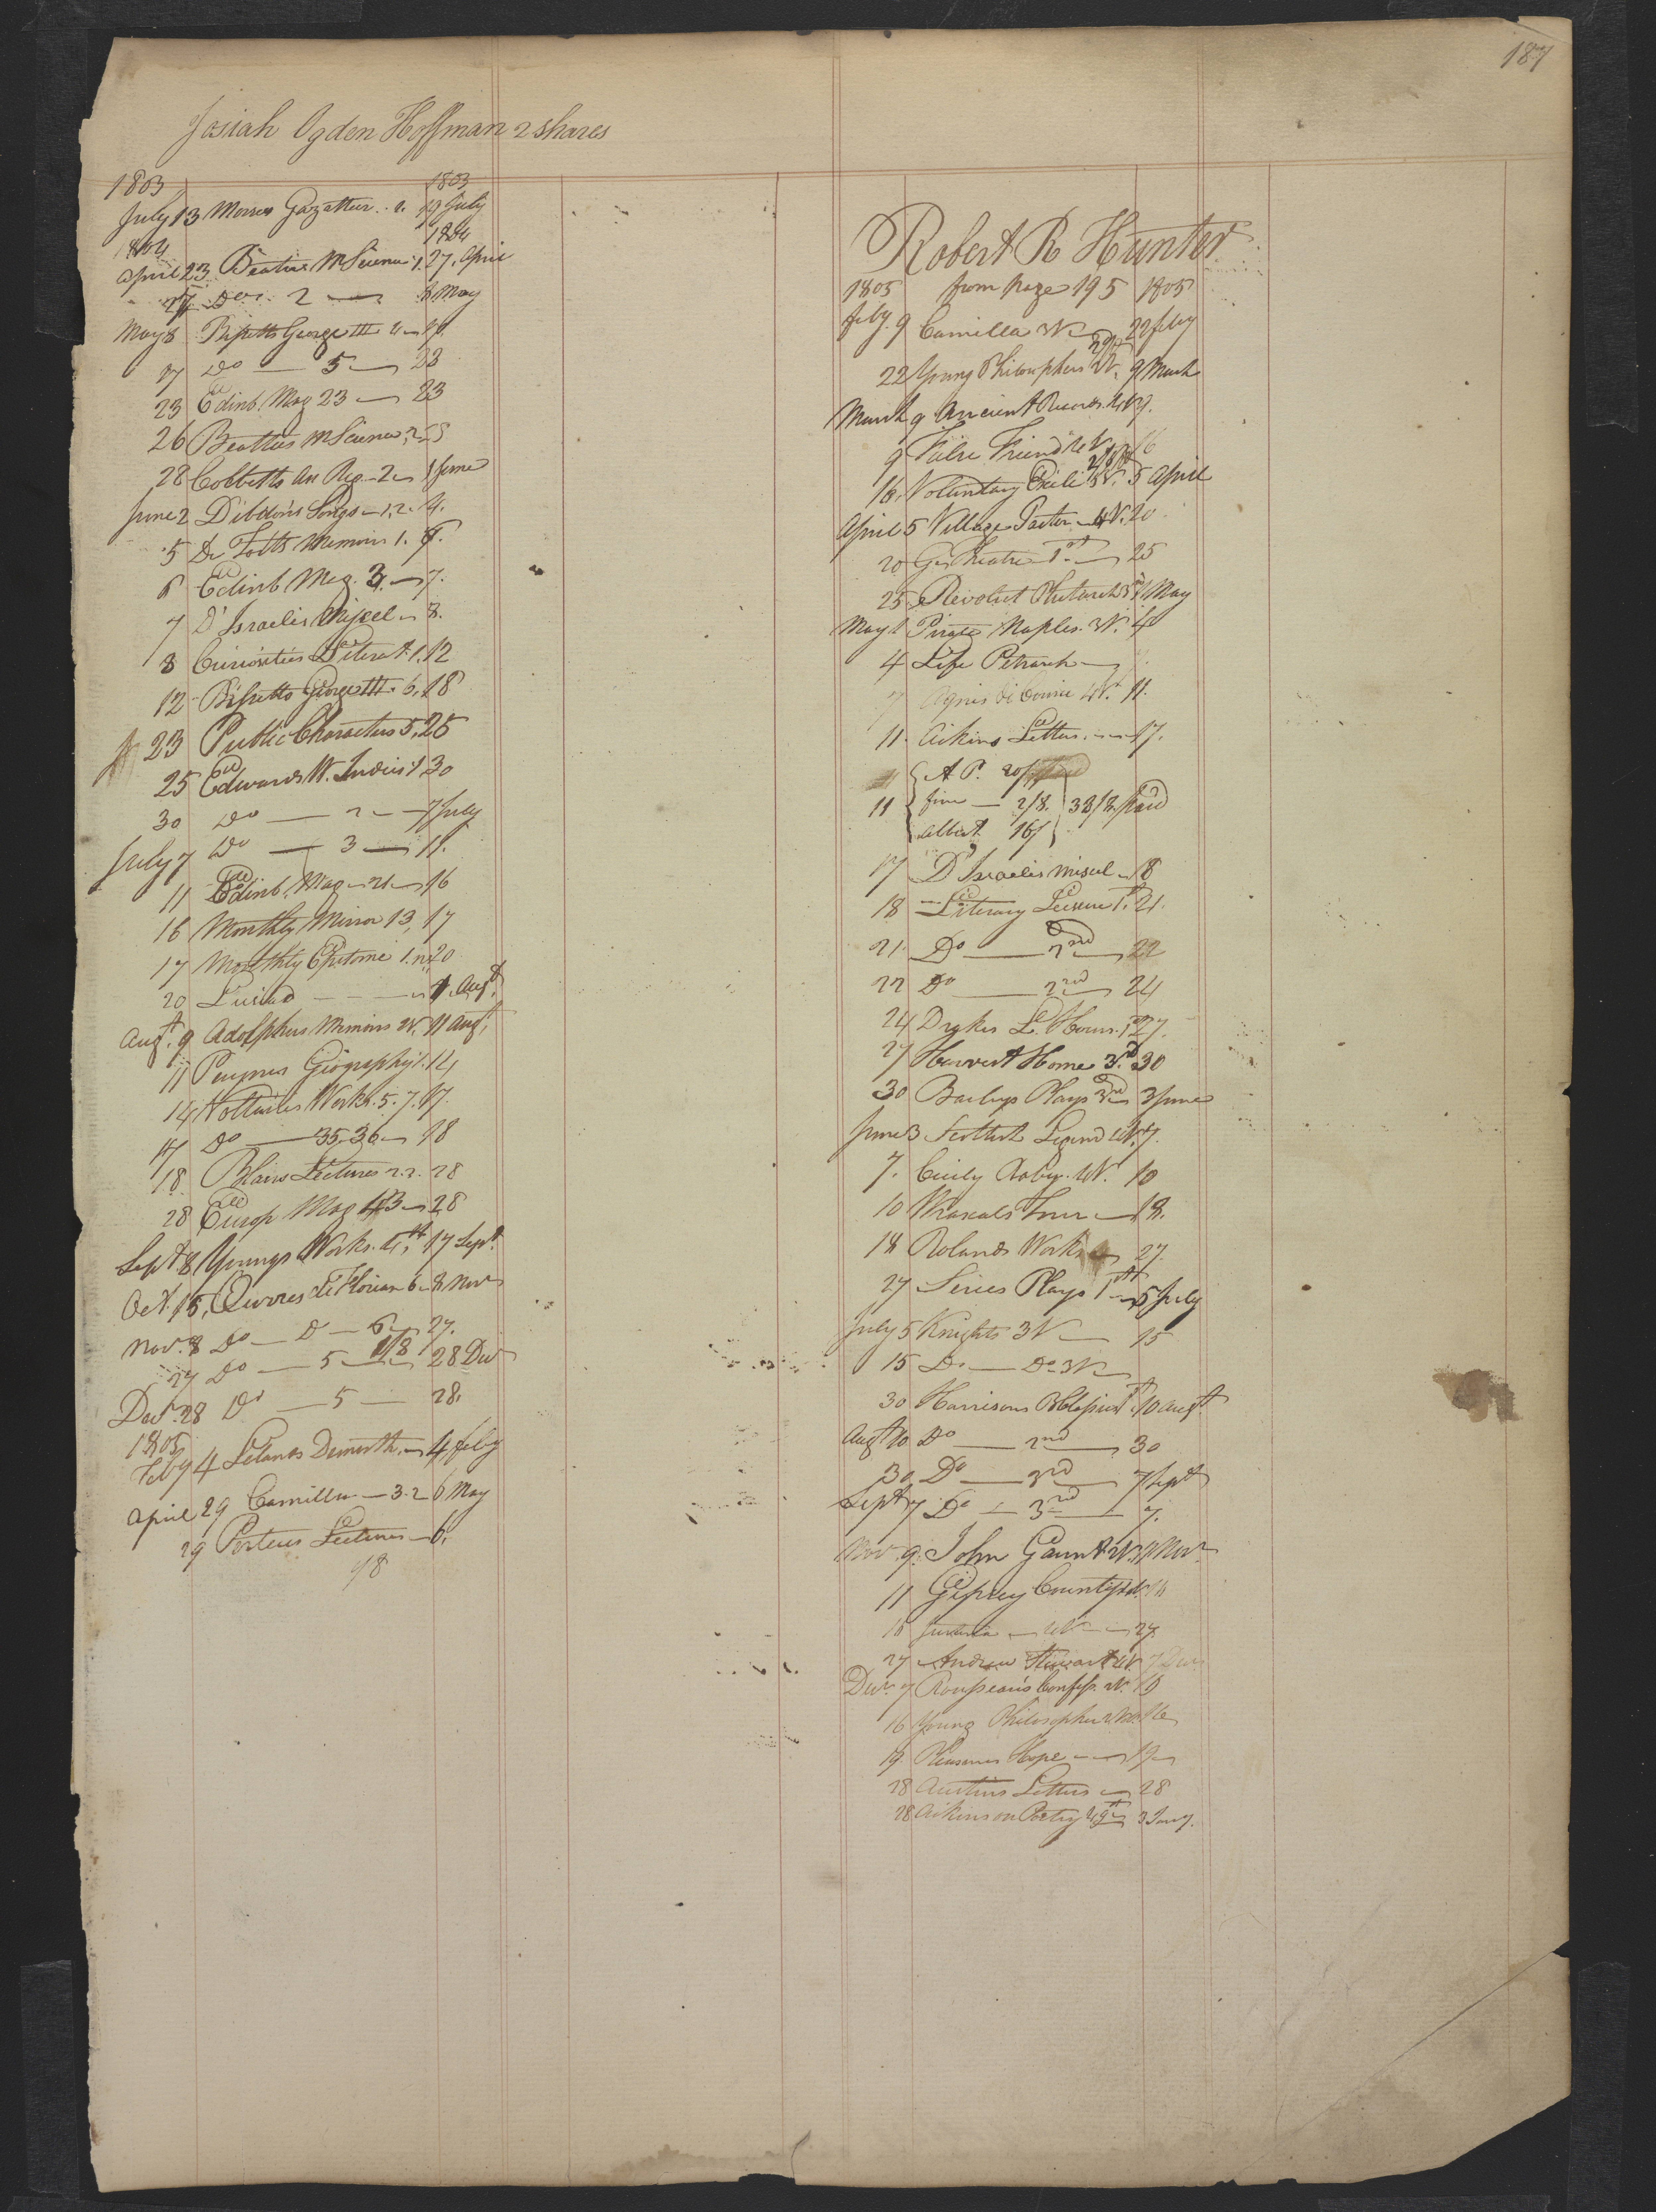 187
Josiah Ogden Hoffman 2 shares
1803 1803
July 13 Morses Gazatteer 19 July
1804 1804
April 23 Beatties M Science 1. 27. April
27 Do 2 8 May
May 8 Bissetts George III 4 17.
17 Do 5 23
23 Edinb. Mag 23 23
26 Beatties M Science 2
28 Cobbetts An Reg. 2 1 June
June 2 Dibdin's Songs 1.2. 4.
5 De Totts Memoirs 1. 6.
6 Edinb Mag. 3. 7.
7 D'Israelis Miscel 8.
8 Curiosities Literat. 1. 12
12 Bissetts George III. 6. 18
23 Public Characters 5. 25
25 Edwards W. Indies 1 30
30 Do 2 7 July
July 7 Do 3 11.
11 Edinb. Mag 21 16
16 Monthly Mirror 13, 17
17 Monthly Epitome 1. 20
20 Lusiad Augt.
Augt. 9 Adolphus Memoirs 2V. 11 Augt.
11 Paynes Geography 1. 14
14 Voltaires Works. 5. 7. 17.
17 Do 35.36 18
18 Blairs Lectures 2.2. 28
28 Europ Mag 43 28
Sept. 8 Youngs Works. 4th 17 Sept.
Oct. 15, Œuvres de Florian 6 8 Nov
Nov. 8 Do D 6 27.
27 Do 5 1/8 28 Dec
Decr. 28 Do 5 28.
1805
Feby 4 Lelands Demosth. 4 feby
April 29 Camilla 3.2 6 May
29 Porteus Lectures 6.
78
Robert R Hunter
1805 from page 195 1805
feby. 9 Camilla 3V 22 feby
22 Young Philosophers 2V. 9 March
March 9 Ancient Records. 4V 9.
9 False Friend 4V 16
16. Voluntary Exile 5V. 5 April
April 5 Village Pastor 4V. 20
20 Gn Theatre 1st 25
25 Revolut Plutarch 3d 1 May
May 1 Pirate Naples. 3V. 4
4 Life Petrarch
7 Agnes de Courcie 4V. 11.
11. Aikins Letters. 17.
A P. 20/
11 fine 2/8. 38/8. paid
Albert 16/
17 D'Israelis miscel 18
18 Literary Leisure 1st. 21.
21. Do 2nd 22
22 Do 2nd 24
24 Drakes L. Hours. 1st 27.
27 Harvest Home 3d. 30
30 Baileys Plays 3rd 3 June
June 3 Scottish Legend 4V. 7.
7. Cicily Raby. 4V. 10
10 Wraxals Tour 18.
18 Rolands Works 27.
27 Series Plays 1st 5 July
July 5 Knights 3V 15
15 Do Do 3V
30 Harrisons 1st 10 Augt.
Augt 10 Do 2nd 30
30 Do 3rd 7 Sept
Sept 7 Do 3rd 7.
Nov. 9. John Gaunt 2V. 11 Nov
11 Gipsey Countess 4V.
27.
27 Andrew Stewart 4V. 7 Decr
Decr. 7 Rousseau's Confess. 2V.
16 Young Philosopher
19. Pleasures Hope 19
28 Austins Letters 28
28 Aikins on Poetry 3 Jany.